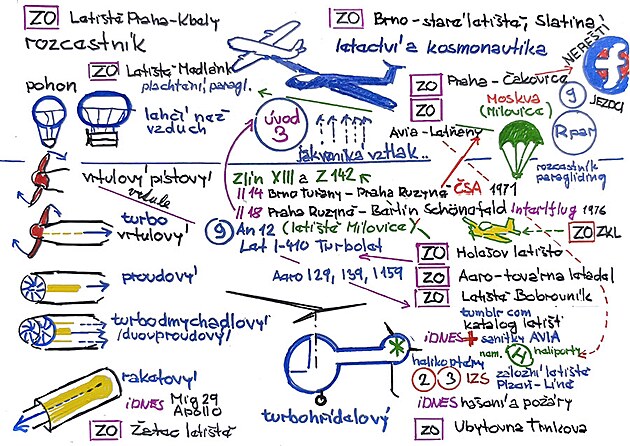 ZO Letiště Praha-Kbely
rozcestník
ZO Brno - staré letiště, Slatina
letectví a kosmonautika
NEBEŠTÍ
JEZDCI
ZO Letiště Medlánk
plachtění, paragl.
pohon
lehčí než
vzduch
úvod
3
jak vzniká vztlak..
ZO Praha - Čakovice
ZO
Moskva
(Milovice)
Avia - Letňany
9
R par
rozcestník
paragliding
vrtulový pístový
vrtule
Zlín XIII a Z 142
Il 14 Brno Tuřany - Praha Ruzyně - ČSA 1971
Il 18 Praha Ruzyně - Berlin Schönefeld Interflug 1976
turbo
vrtulový
9 An 12 (letiště Milovice)
Let L-410 Turbolet
ZO ZKL
ZO Holešov letiště
proudový
Aero L29, L39, L159
ZO Aero - továrna letadel
ZO Letiště Bobrovník
turbodmychadlový
/dvouproudový/
tumblr com
katalog letišť
iDNES + sanitky AVIA
nem. H heliporty
helikoptéry
2 3 IZS
záložní letiště
Plzeň - Líně
raketový
iDNES Mig 29
Apollo
turbohřídelový
iDNES hašení a požáry
ZO Žatec letiště
ZO Ubytovna Trnkova